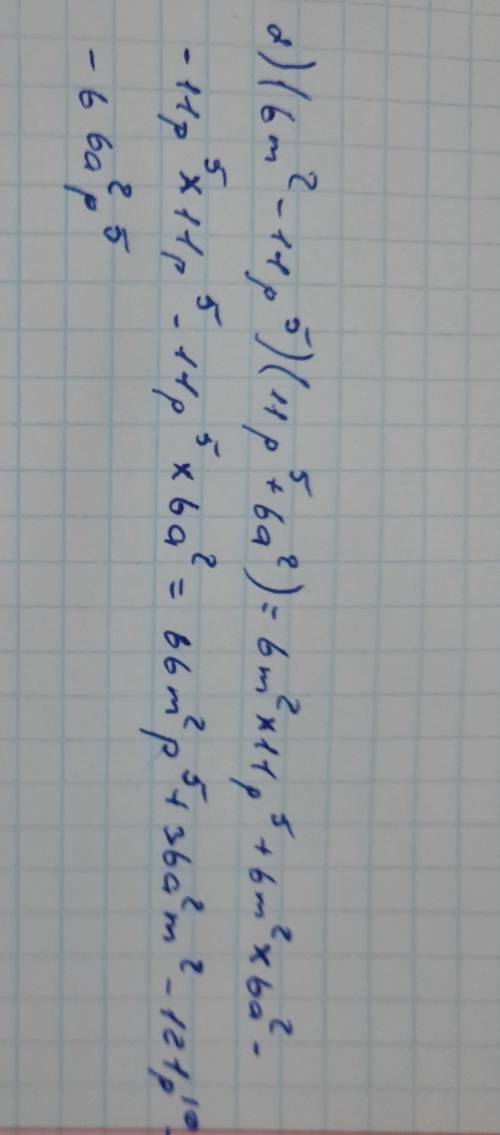 д) (6m² - 11p⁵)(11p⁵ + 6a²) = 6m² × 11p⁵ + 6m² × 6a² -
- 11p⁵ × 11p⁵ - 11p⁵ × 6a² = 66m²p⁵ + 36a²m² - 121p¹⁰ -
- 66a²p⁵